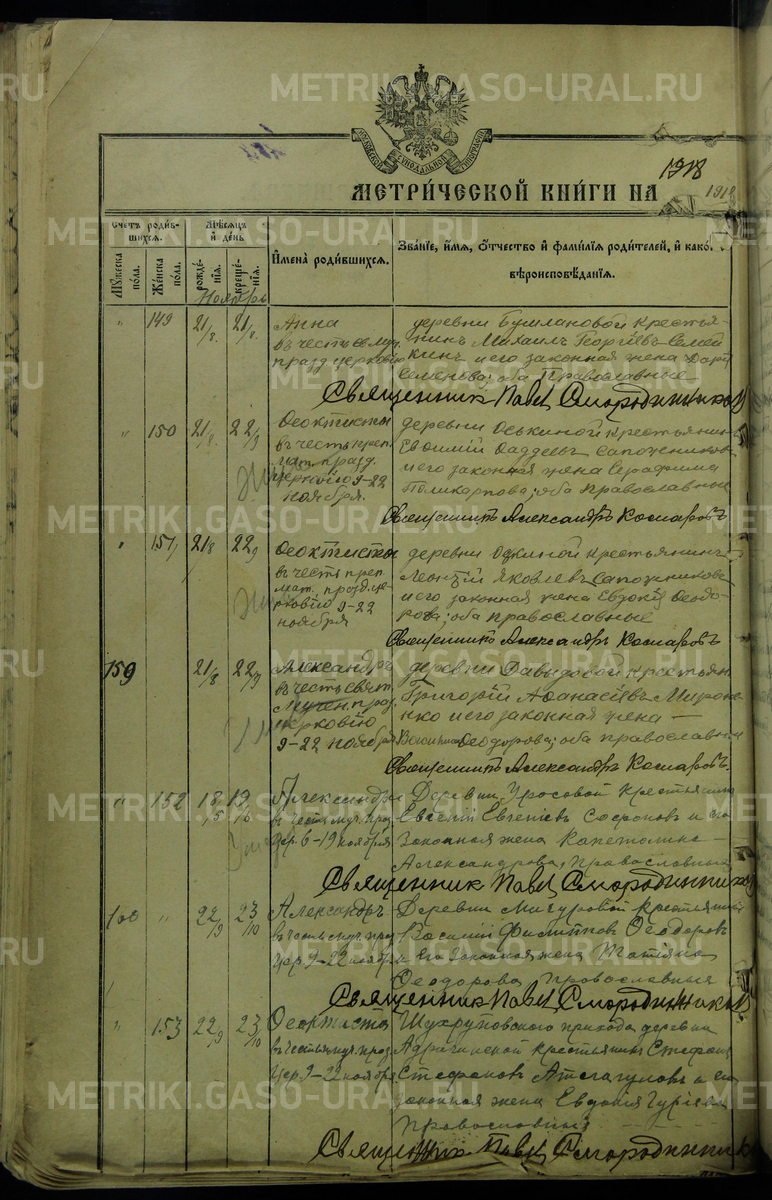 METRIKI.GASO-URAL.RU
МОСКОВСКОЙ СИНОДАЛЬНОЙ ТИПОГРАФІИ
МЕТРИ́ЧЕСКОЙ КНИ́ГИ НА 1918
1918
Счетъ роди́вшихся.
Мѣ́сяцъ и̑ де́нь
И̑мена̀ роди́вшихся.
Зва́нїе, и̑́мя, о̑́тчество и̑ фами́лїя роди́телей, и̑ како́
вѣроисповѣ́данїя.
Му́жеска по́ла.
Же́нска по́ла.
рожде́нїя.
креще́нїя.
Ноябрь
" 149 21/8. 21/8. Анна
въ честь св. муч.
празд. церковію
деревни Крестья-
нинъ Михаилъ Георгіевъ Семей
кинъ и его законная жена
Семенова; оба Православные
Священник Павел Смородинников
" 150 21/8. 22/9 Ѳеоктисты
въ честь преп.
мат. празд.
церковію 9-22
ноября.
деревни Оськиной крестьянинъ
Евѳимій Ѳаддеевъ Сапожников
и его законная жена Серафима
Поликарпова; оба православные
Священникъ Александръ Комаровъ
" 151 21/8 22/9 Ѳеоктисты
въ честь преп.
мат. празд. це-
рковію 9-22
ноября
деревни крестьянинъ
Леонтій Яковлевъ Сапожниковъ
и его законная жена Евдокія Ѳеодо-
рова; оба православные
Священникъ Александръ Комаровъ
159 21/8 22/9 Александръ
въ честь свят.
Мучен. праз.
церковію
9-22 ноября
деревни Давыдовой крестьян
Григорій Аѳанасіевъ Мироне
нко и его законная жена —
Ѳеодорова; оба православные
Священникъ Александръ Комаровъ.
" 152 18/5 19/6 Александра
въ честь муч. праз.
цер. 6-19 ноября
Деревни Уросовой Крестьянин
Евгеній Евгеніев Софронов и его
Законная жена Капетолина
Александрова, Православные
Священник Павел Смородинников
160 " 22/9 23/10 Александръ
въ честь муч. праз
цер. 9-22 ноября
Деревни Мичуровой Крестьянин
Василій Филиппов Ѳеодоров
и Его Законная жена Татіяна
Ѳеодорова Православныя
Священник Павел Смородинников
" 153 22/9 23/10 Ѳеоктиста
въ честь муч. праз.
цер. 9-22 ноября
Шухруповского прихода деревни
крестьянинъ Стефанъ
Стефановъ и его
законная жена Евдокія Гуріева
Православныя
Священник Павел Смородинников